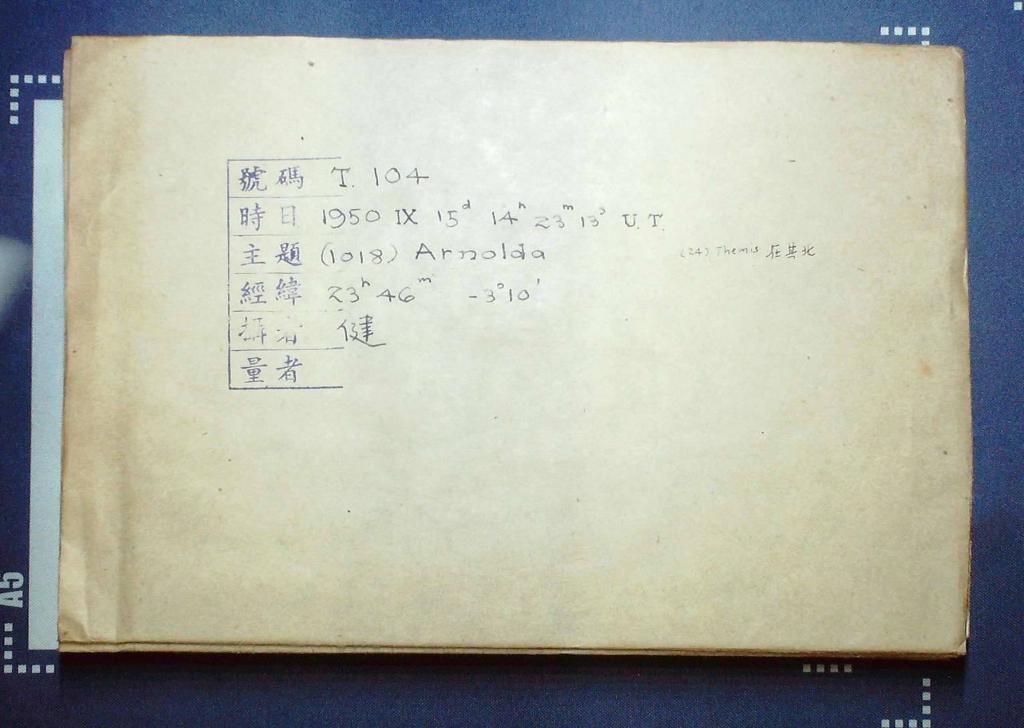 號碼 T. 104
時日 1950 IX 15ᵈ 14ʰ 23ᵐ 13ˢ U.T.
主題 (1018) Arnolda (24) Themis 在其北
經緯 23ʰ 46ᵐ -3°10'
攝者 健
量者
A5